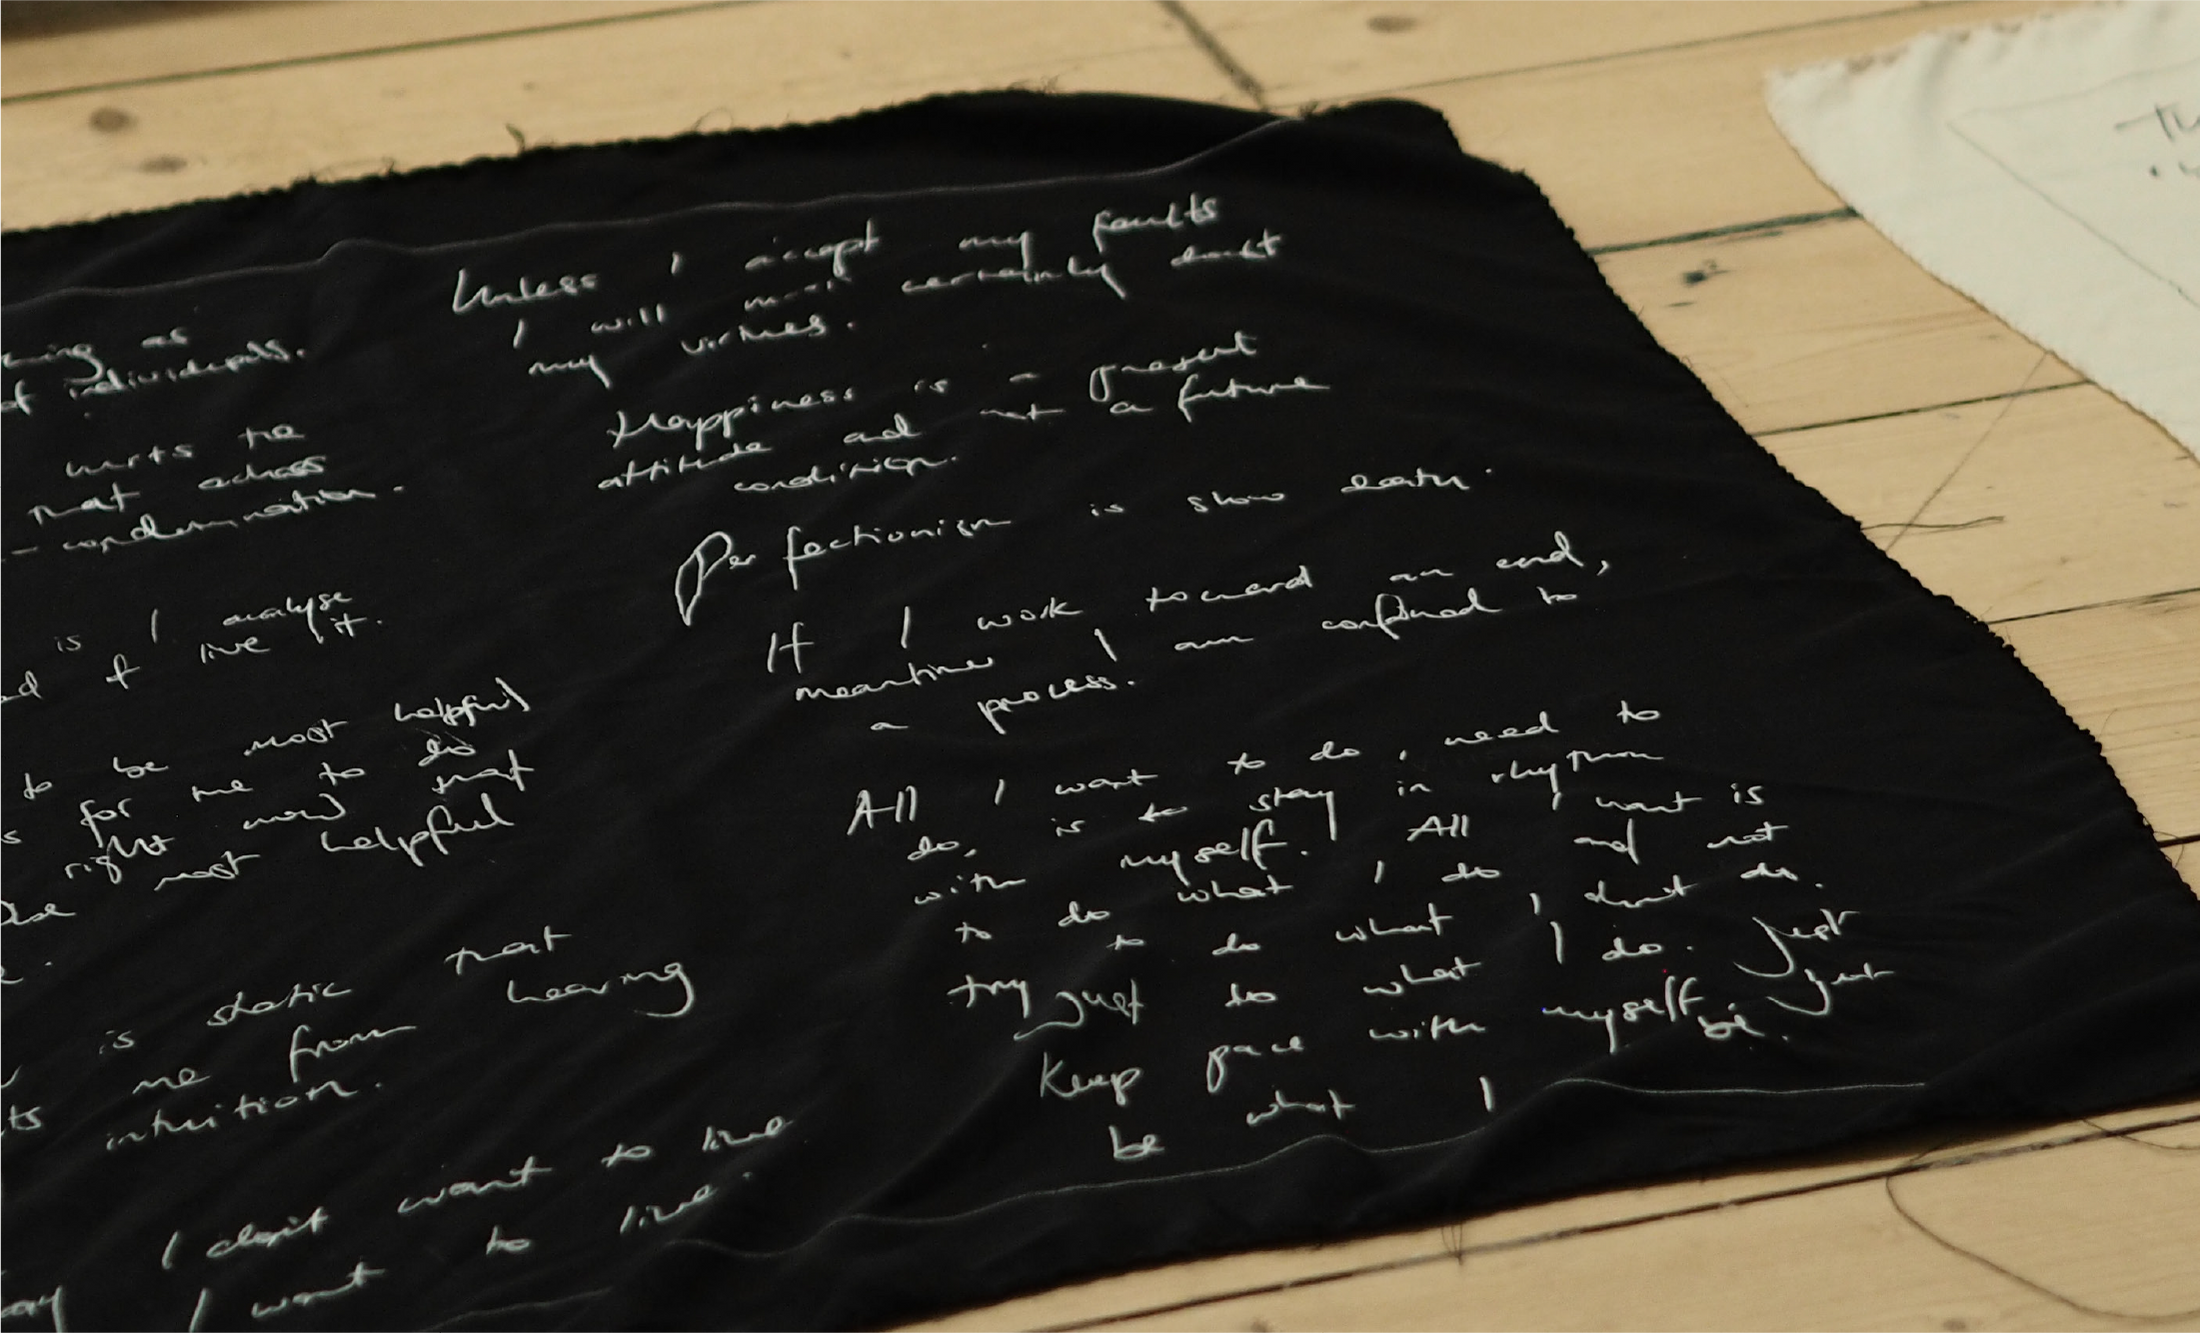 hing as
of individuals.
hurts the
that echoes
- condemnation.
is I analyse
of live it.
to be most helpful
for me to do
right now) that
most helpful
is static that
me from hearing
intuition.
I don't want to live
I want to live.
Unless I accept my faults
I will most certainly doubt
my virtues.
Happiness is a present
attitude and not a future
condition.
Perfectionism is slow death.
If I work toward an end,
meantime I am confined to
a process.
All I want to do, need to
do, is to stay in rhythm
with myself. All I want is
to do what I do and not
try to do what I don't do.
Just do what I do. Just
Keep pace with myself. Just
be what I be.
Th